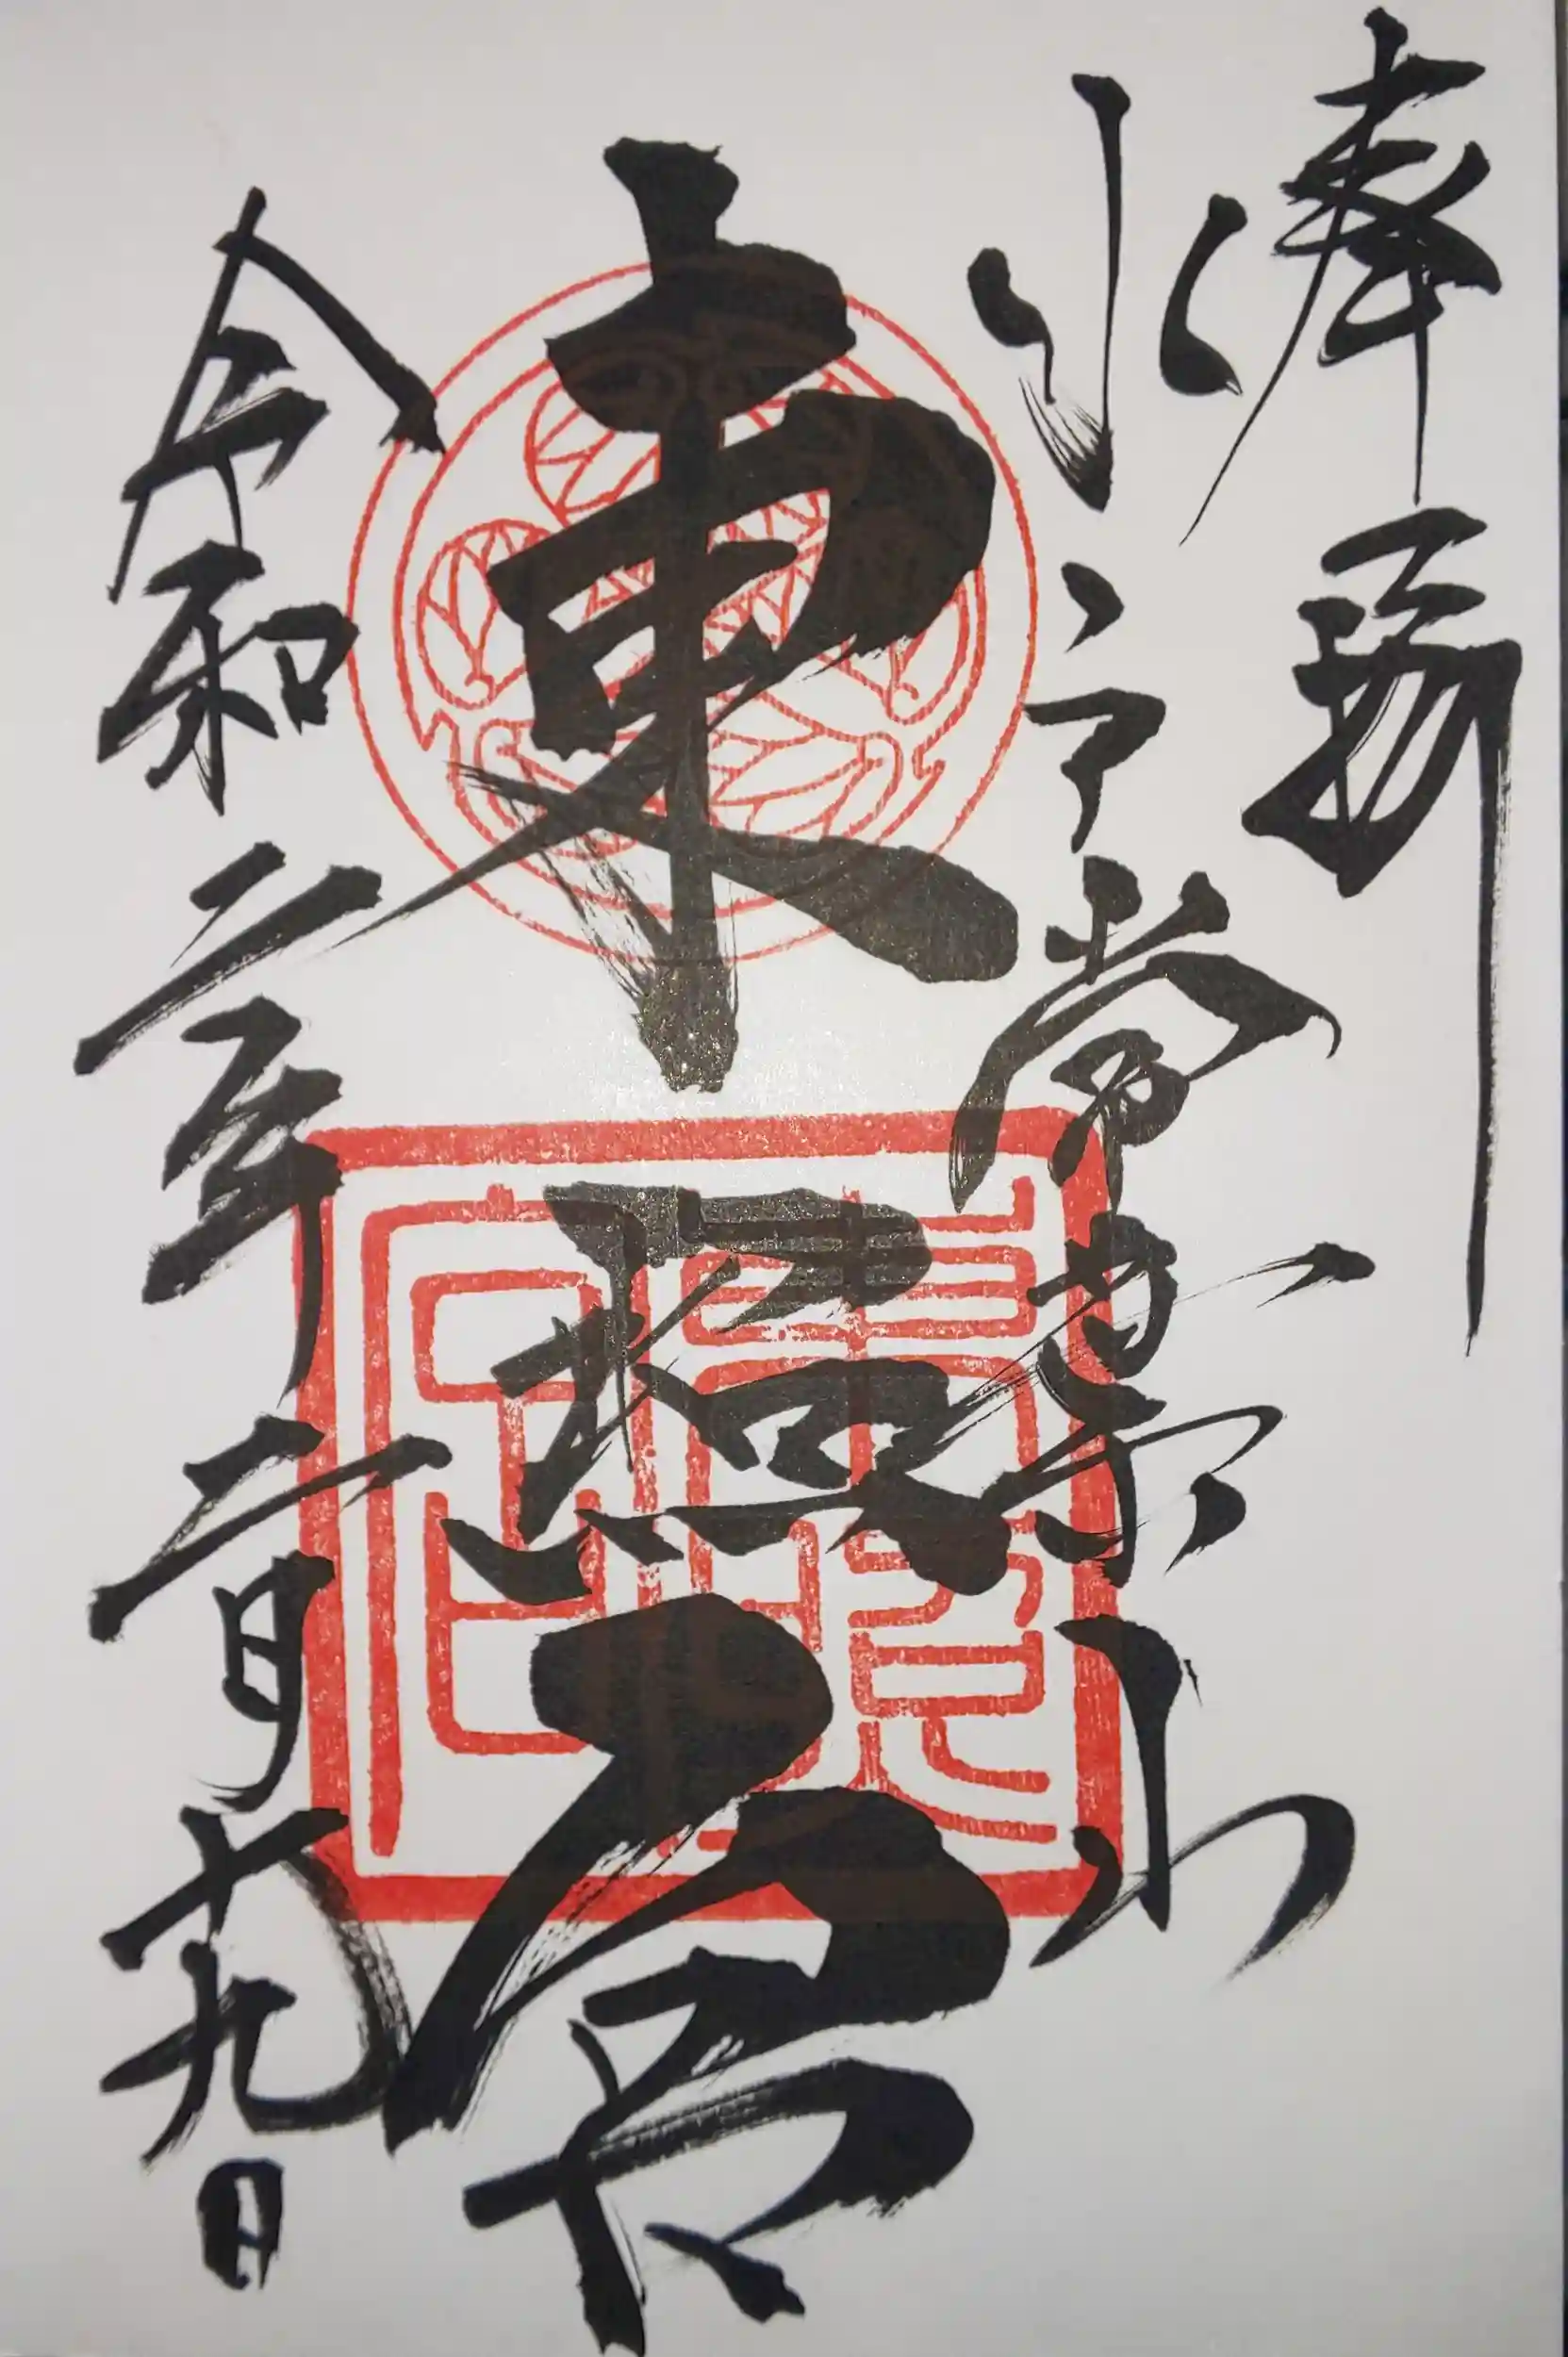 奉拝
水戸常葉山
東照宮
令和二年二月十九日
東照宮